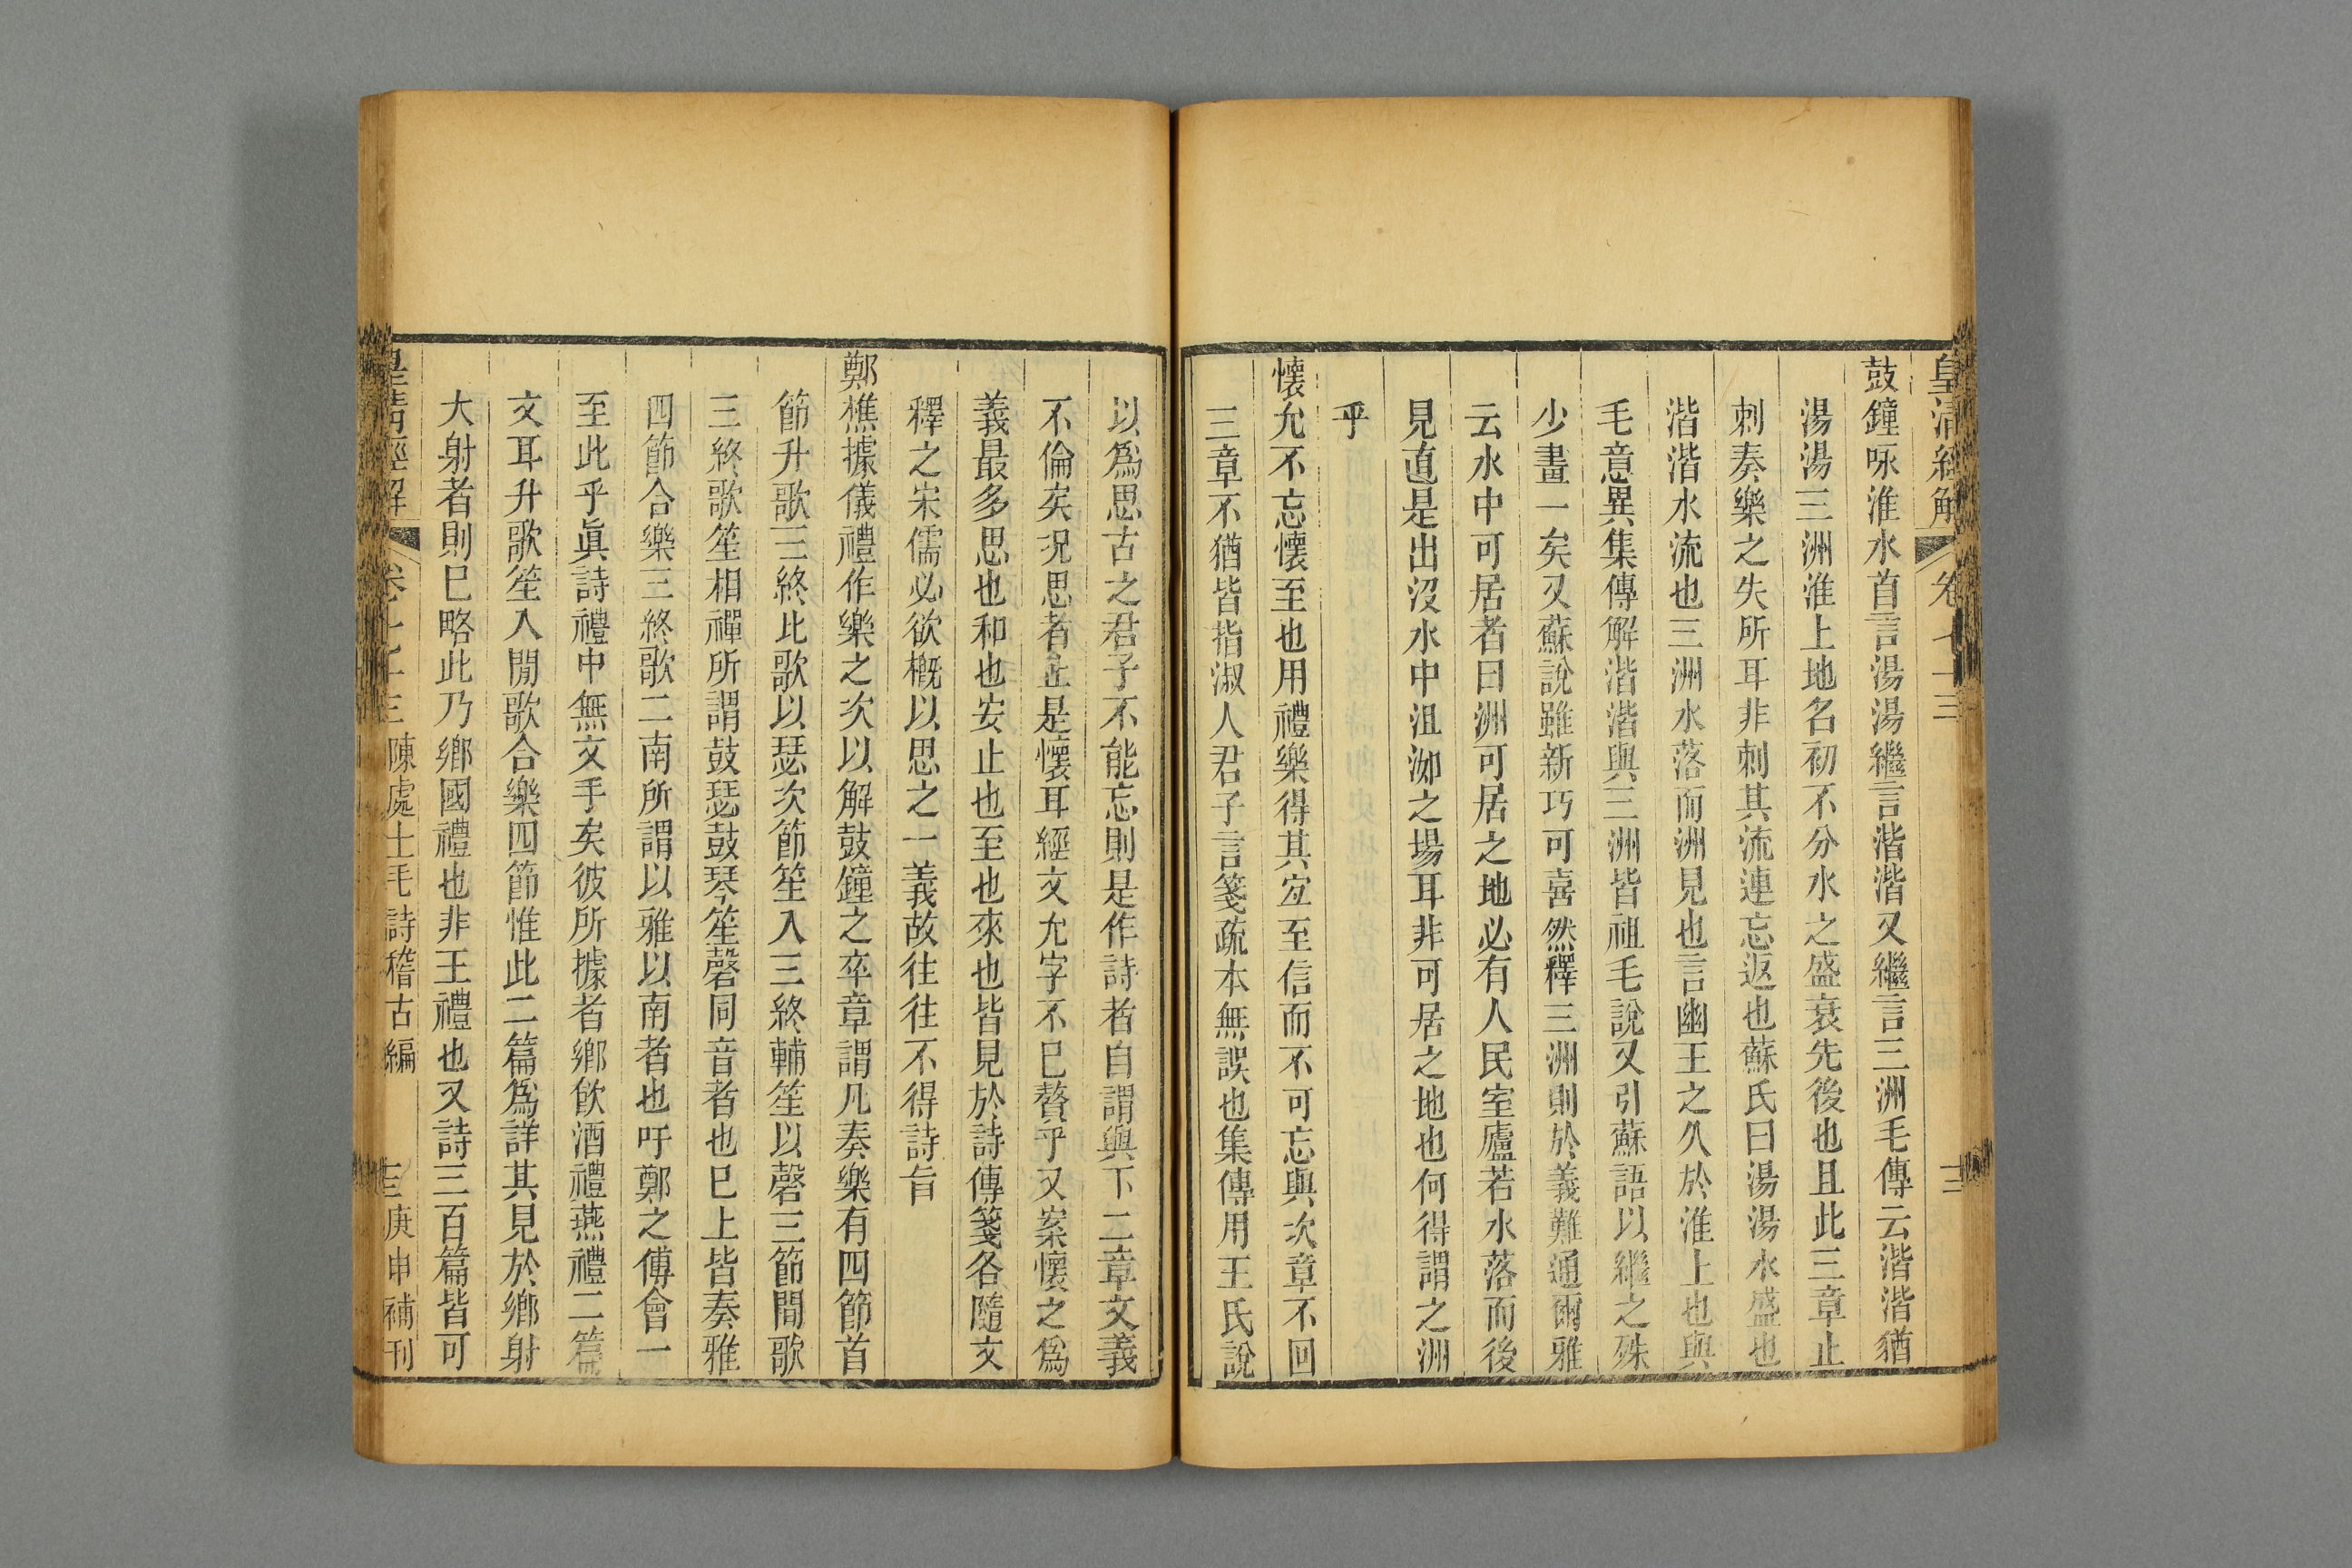 皇清經解 卷七十三 十三
鼓鐘咏淮水首言湯湯繼言湝湝又繼言三洲毛傳云湝湝猶
湯湯三洲淮上地名初不分水之盛衰先後也且此三章止
刺奏樂之失所耳非刺其流連忘返也蘇氏曰湯湯水盛也
湝湝水流也三洲水落而洲見也言幽王之久於淮上也與
毛意異集傳解湝湝與三洲皆祖毛說又引蘇語以繼之殊
少畫一矣又蘇說雖新巧可喜然釋三洲則於義難通爾雅
云水中可居者曰洲可居之地必有人民室廬若水落而後
見直是出沒水中沮洳之場耳非可居之地也何得謂之洲
乎
懷允不忘懷至也用禮樂得其宜至信而不可忘與次章不回
三章不猶皆指淑人君子言箋疏本無誤也集傳用王氏說
以爲思古之君子不能忘則是作詩者自謂與下二章文義
不倫矣況思者正是懷耳經文允字不已贅乎又案懷之爲
義最多思也和也安止也至也來也皆見於詩傳箋各隨文
釋之宋儒必欲槪以思之一義故往往不得詩旨
鄭樵據儀禮作樂之次以解鼓鐘之卒章謂凡奏樂有四節首
節升歌三終比歌以瑟次節笙入三終輔笙以磬三節間歌
三終歌笙相禪所謂鼓瑟鼓琴笙磬同音者也巳上皆奏雅
四節合樂三終歌二南所謂以雅以南者也吁鄭之傅會一
至此乎眞詩禮中無文手矣彼所據者鄉飮酒禮燕禮二篇
文耳升歌笙入閒歌合樂四節惟此二篇爲詳其見於鄉射
大射者則巳略此乃鄉國禮也非王禮也又詩三百篇皆可
皇清經解 卷七十三 陳處士毛詩稽古編 十三 庚申補刊